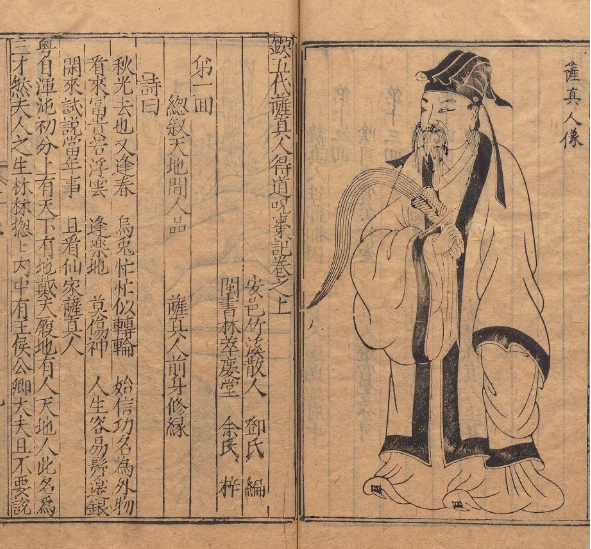 薩真人像
鍥五代薩真人得道咒棗記卷之上
安邑竹溪散人 鄧氏 編
閩書林萃慶堂 余氏 梓
第一回
總敘天地間人品 薩真人前身修緣
詩曰
秋光去也又逢春 烏兔忙忙似轉輪 始信功名為外物
看來富貴若浮雲 逢樂地 莫傷神 人生容易鬢邊銀
閑來試說當年事 且看仙家薩真人
粵自渾沌初分上有天下有地戴天履地有人天地人此名為
三才然夫人之生林林總總內中有王侯公卿大夫且不要說